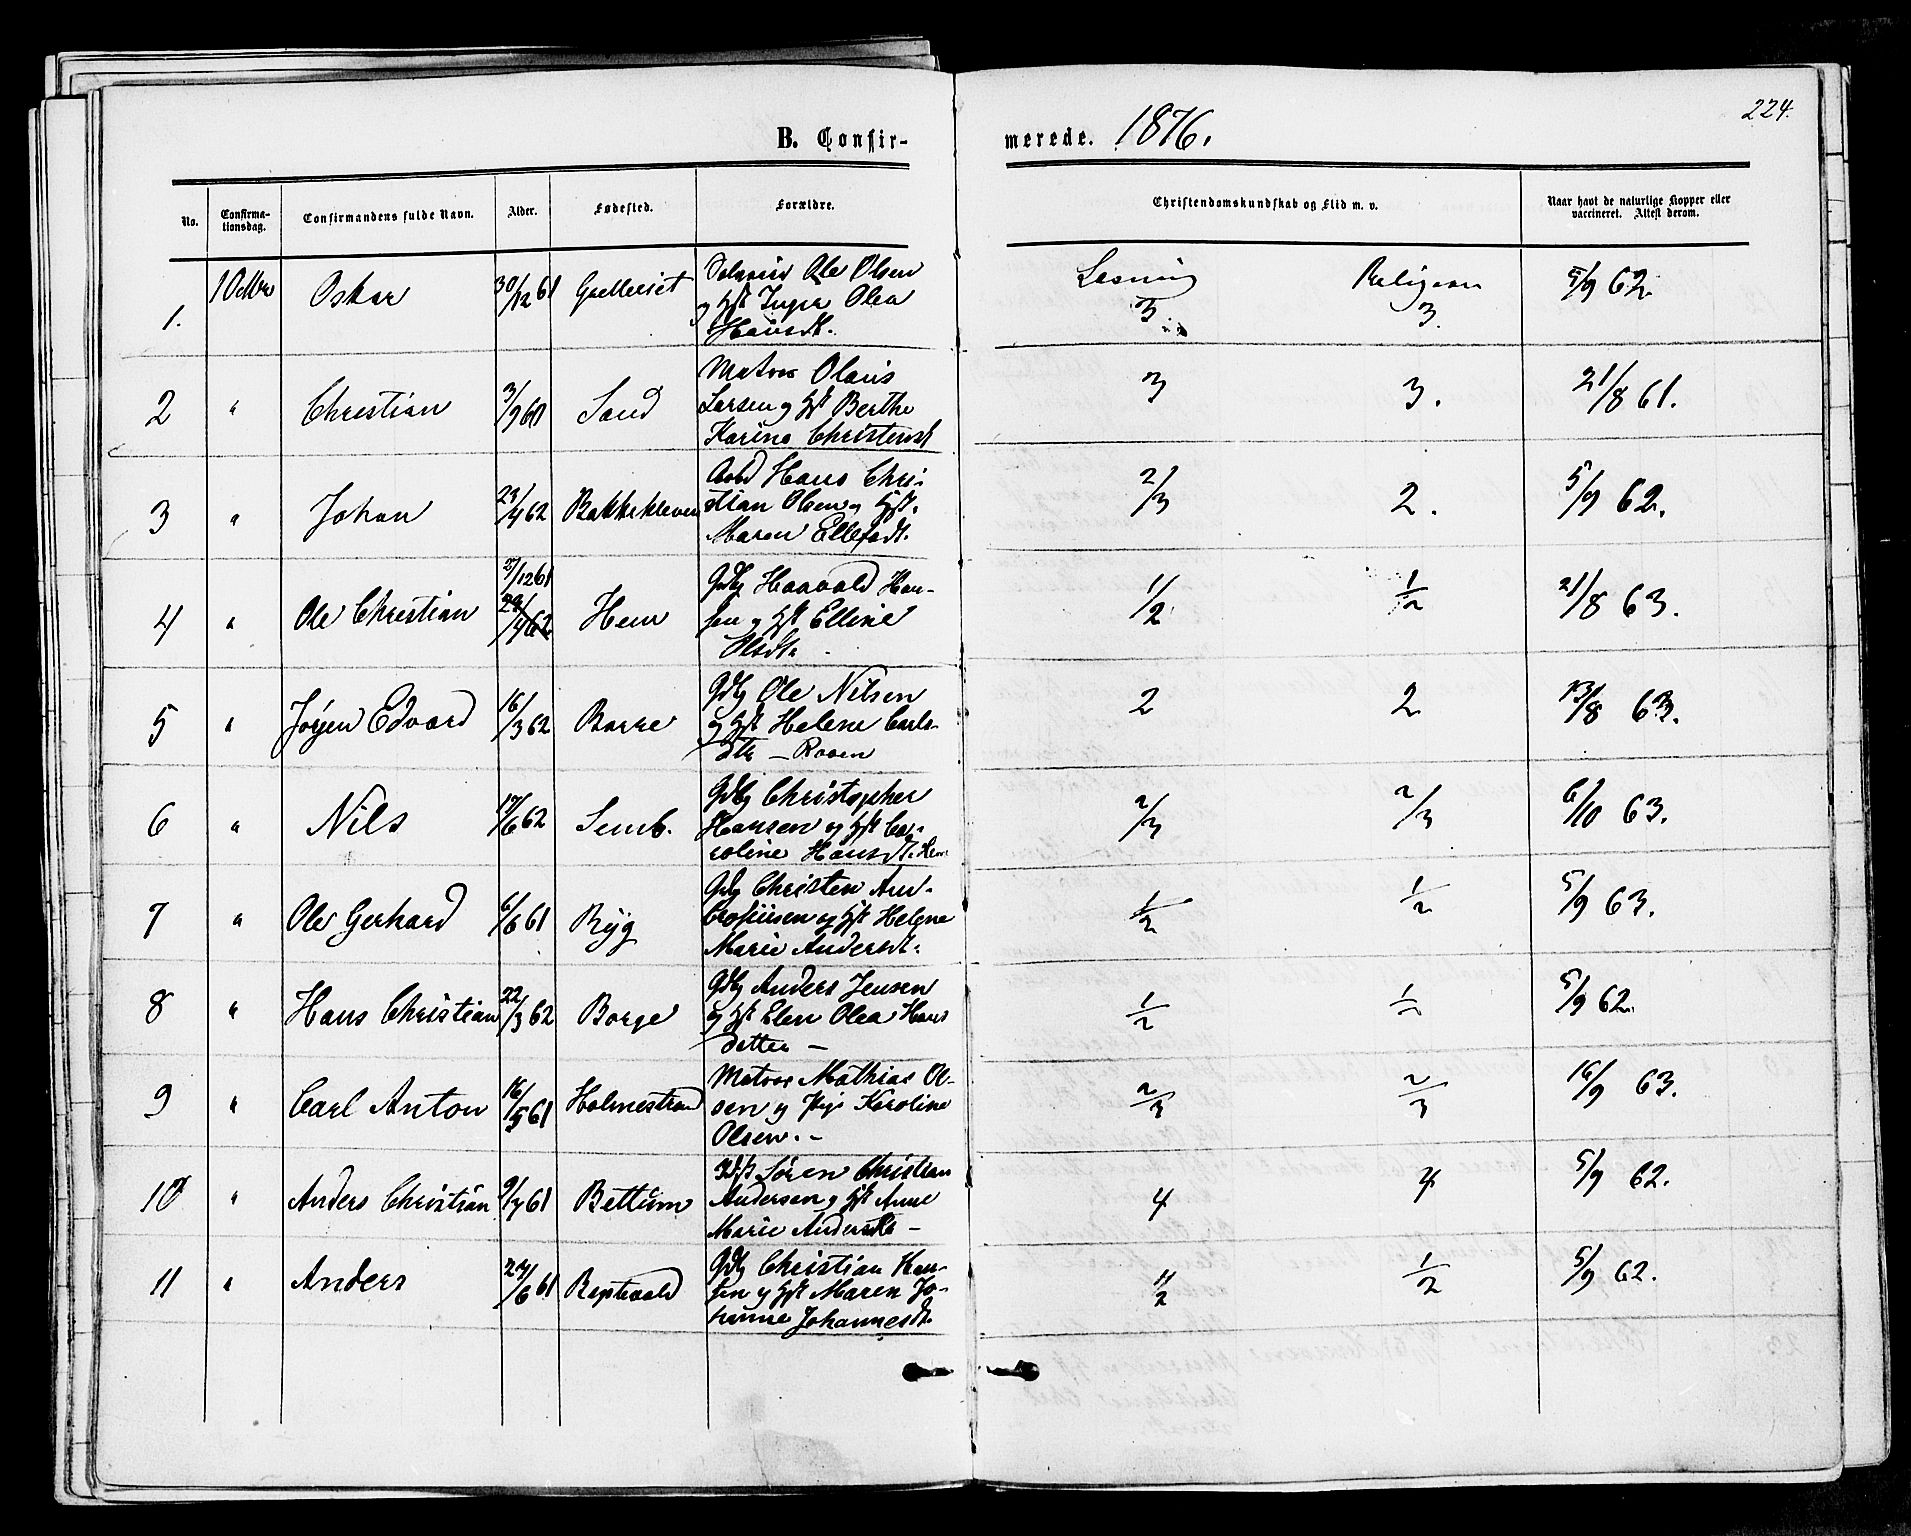 224.
B. Confirmerede. 1876.
No. Confirmationsdag. Confirmandens fulde Navn. Alder. Fødested. Forældre. Christendomskundskab og Flid m. v. Naar havt de naturlige Kopper eller vaccineret. Attest derom.
Lesning Religion
1. 1 Octbr Oskar 30/12 61 Ole Olsen 3. 3. 5/9 62.
og Hst Inger Olea
Hansdt.
2 " Christian 3/9 60 Sand Matros Olaus 3 3. 21/8 61.
Larsen og Hst Berthe
Karine Christensd
3 " Johan 23/4 62 Bakkekleven Hans Chri- 2/3 2. 5/9 62.
stian Olsen og Hst.
Maren Ellefsdt.
4 " Ole Christian 27/12 61 29/4 62 Hem Gdbg Haavald Han- 1/2 1/2 21/8 63.
sen og Hst Elline
Olsdtr
5 " Jørgen Edvard 16/3 62 Borre Gdbg Ole Nilsen 2 2 13/8 63.
og Hst Helene Carls-
dtr – Raaen
6 " Nils 17/6 62 Semb. Gdbg Christopher 2/3 2/3 6/10 63.
Hansen og Hst Ca-
roline Hansdt. Hem
7 " Ole Gerhard 6/6 61 Ryg Gdbg Christen Am- 1/2 1/2 5/9 63.
brosiusen og Hst Helene
Marie Andersdt.
8 " Hans Christian 22/3 62 Borge Gdbg Anders Jensen 1/2 1/2 5/9 62.
og Hst Elen Olea Hans
datter –
9 " Carl Anton 16/5 61 Holmestrand Matros Mathias Ol- 2/3 2/3 16/9 63.
sen og Pige Karoline
Olsen. –
10 " Anders Christian 9/7 61 Bettum Søren Christian 4 4 5/9 62.
Andersen og Hst Anne
Marie Andersdt –
11 " Anders 24/6 61 Gdbg Christian Han- 1/2 1/2 5/9 62.
sen og Hst Maren Jo-
hanne Johannesdt.